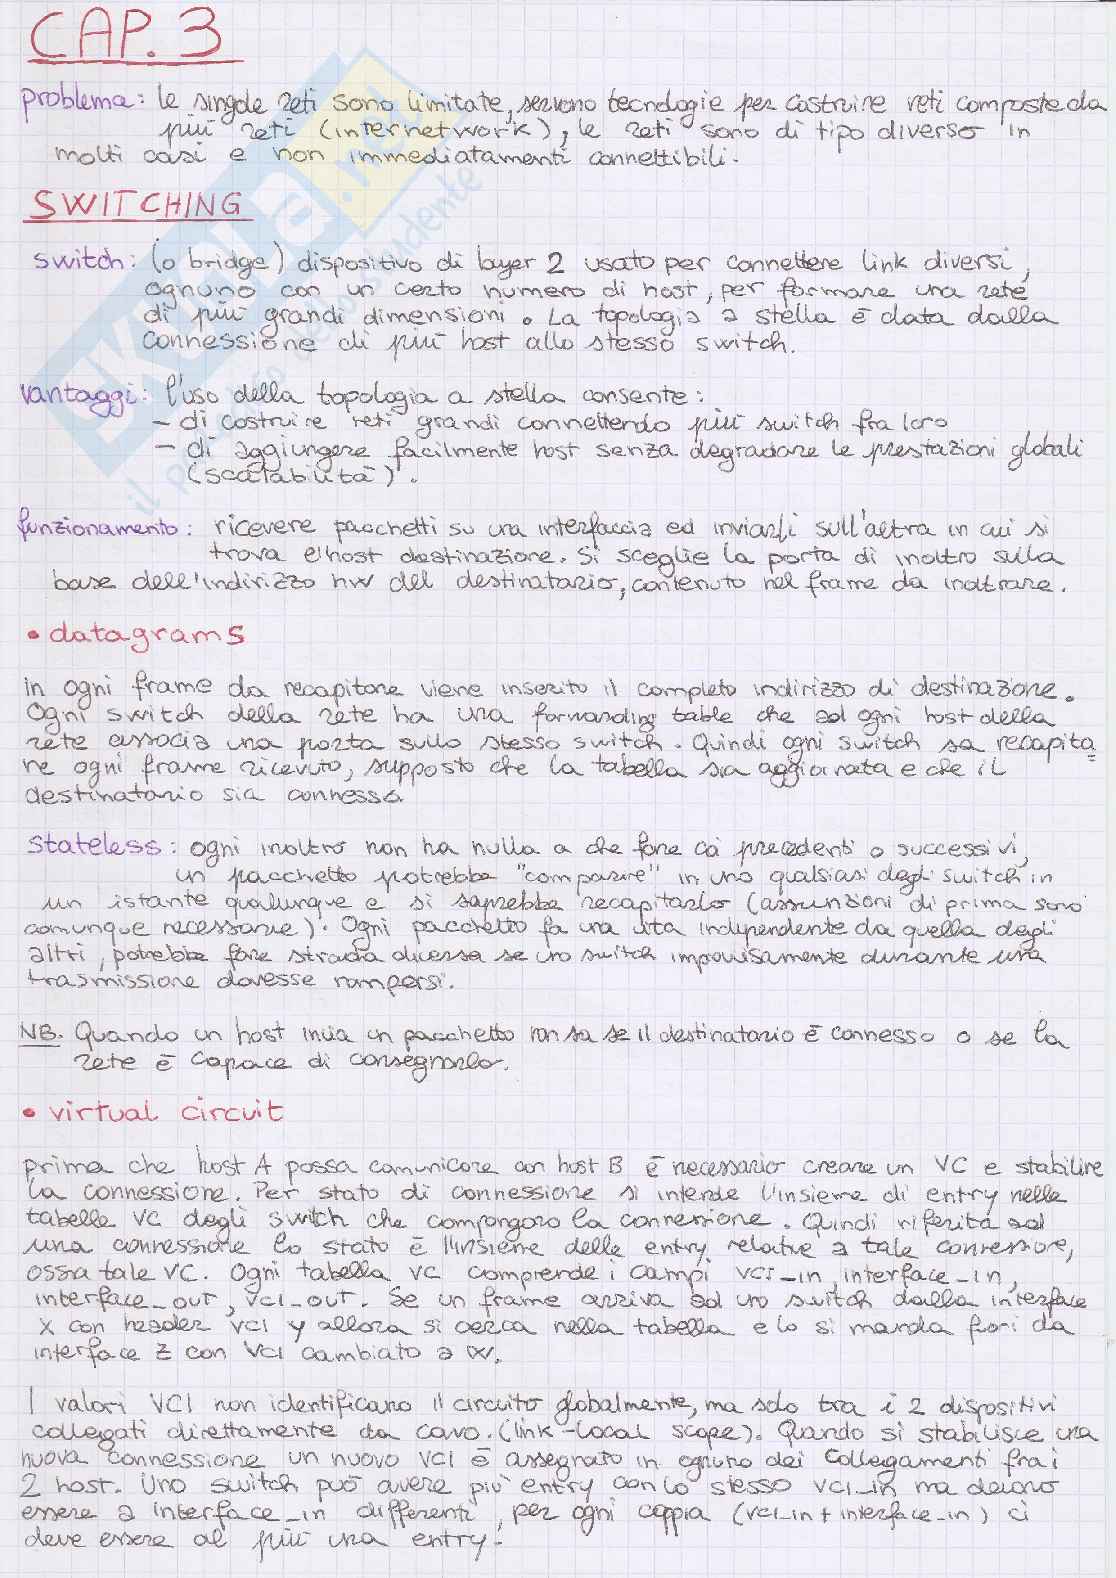 CAP. 3
problema: le singole reti sono limitate, servono tecnologie per costruire reti composte da
più reti (internetwork), le reti sono di tipo diverso in
molti casi e non immediatamenti connettibili.
SWITCHING
switch: (o bridge) dispositivo di layer 2 usato per connettere link diversi,
ognuno con un certo numero di host, per formare una rete
di più grandi dimensioni. La topologia a stella è data dalla
connessione di più host allo stesso switch.
vantaggi: l'uso della topologia a stella consente:
- di costruire reti grandi connettendo più switch fra loro
- di aggiungere facilmente host senza degradare le prestazioni globali
(scalabilità).
funzionamento: ricevere pacchetti su una interfaccia ed inviarli sull'altra in cui si
trova l'host destinazione. Si sceglie la porta di inoltro sulla
base dell'indirizzo hw del destinatario, contenuto nel frame da inoltrare.
• datagrams
in ogni frame da recapitare viene inserito il completo indirizzo di destinazione.
Ogni switch della rete ha una forwarding table che ad ogni host della
rete associa una porta sullo stesso switch. Quindi ogni switch sa recapita
re ogni frame ricevuto, supposto che la tabella sia aggiornata e che il
destinatario sia connesso.
stateless: ogni inoltro non ha nulla a che fare coi precedenti o successivi,
un pacchetto potrebbe "comparire" in uno qualsiasi degli switch in
un istante qualunque e si saprebbe recapitarlo (assunzioni di prima sono
comunque necessarie). Ogni pacchetto fa una vita indipendente da quella degli
altri, potrebbe fare strada diversa se uno switch improvvisamente durante una
trasmissione dovesse rompersi.
NB. Quando un host invia un pacchetto non sa se il destinatario è connesso o se la
rete è capace di consegnarlo.
• virtual circuit
prima che host A possa comunicare con host B è necessario creare un VC e stabilire
la connessione. Per stato di connessione si intende l'insieme di entry nelle
tabelle VC degli switch che compongono la connessione. Quindi riferita ad
una connessione lo stato è l'insieme delle entry relative a tale connessione,
ossia tale VC. Ogni tabella VC comprende i campi VCI_in, interface_in,
interface_out, VCI_out. Se un frame arriva ad uno switch dalla interface
X con header VCI y allora si cerca nella tabella e lo si manda fuori da
interface Z con VCI cambiato a W.
I valori VCI non identificano il circuito globalmente, ma solo tra i 2 dispositivi
collegati direttamente da cavo. (link-local scope). Quando si stabilisce una
nuova connessione un nuovo VCI è assegnato in ognuno dei collegamenti fra i
2 host. Uno switch può avere più entry con lo stesso VCI_in ma devono
essere a interface_in differenti, per ogni coppia (VCI_in + interface_in) ci
deve essere al più una entry.